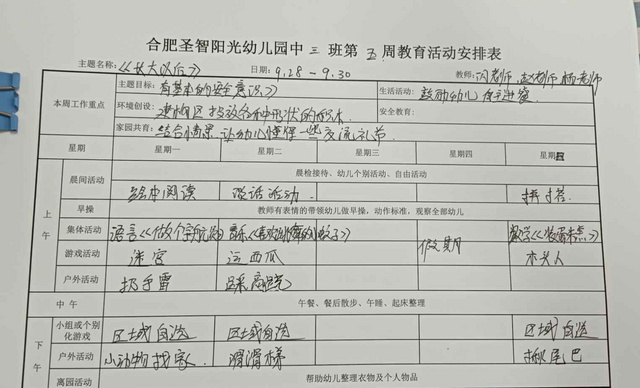 合肥圣智阳光幼儿园中三班第五周教育活动安排表
主题名称:《长大以后》 日期:9.28-9.30 教师:闪老师 赵老师 杨老师
本周工作重点
主题目标:有基本的安全意识 生活活动:鼓励幼儿自主进餐
环境创设:建构区投放各种形状的积木 安全教育:
家园共育:结合情景,让幼儿懂得一些交流礼节
星期 星期一 星期二 星期三 星期四 星期五
上午
晨间活动 晨检接待、幼儿个别活动、自由活动
绘本阅读 谈话活动 拼搭
早操 教师有表情的带领幼儿做早操,动作标准,观察全部幼儿
集体活动 语言《做个宇航员》 音乐 数学
游戏活动 迷宫 运西瓜 假期 木头人
户外活动 扔手雷 踩高跷
中午 午餐、餐后散步、午睡、起床整理
下午
小组或个别化游戏 区域自选 区域自选 区域自选
户外活动 小动物找家 滑滑梯 揪尾巴
离园活动 帮助幼儿整理衣物及个人物品